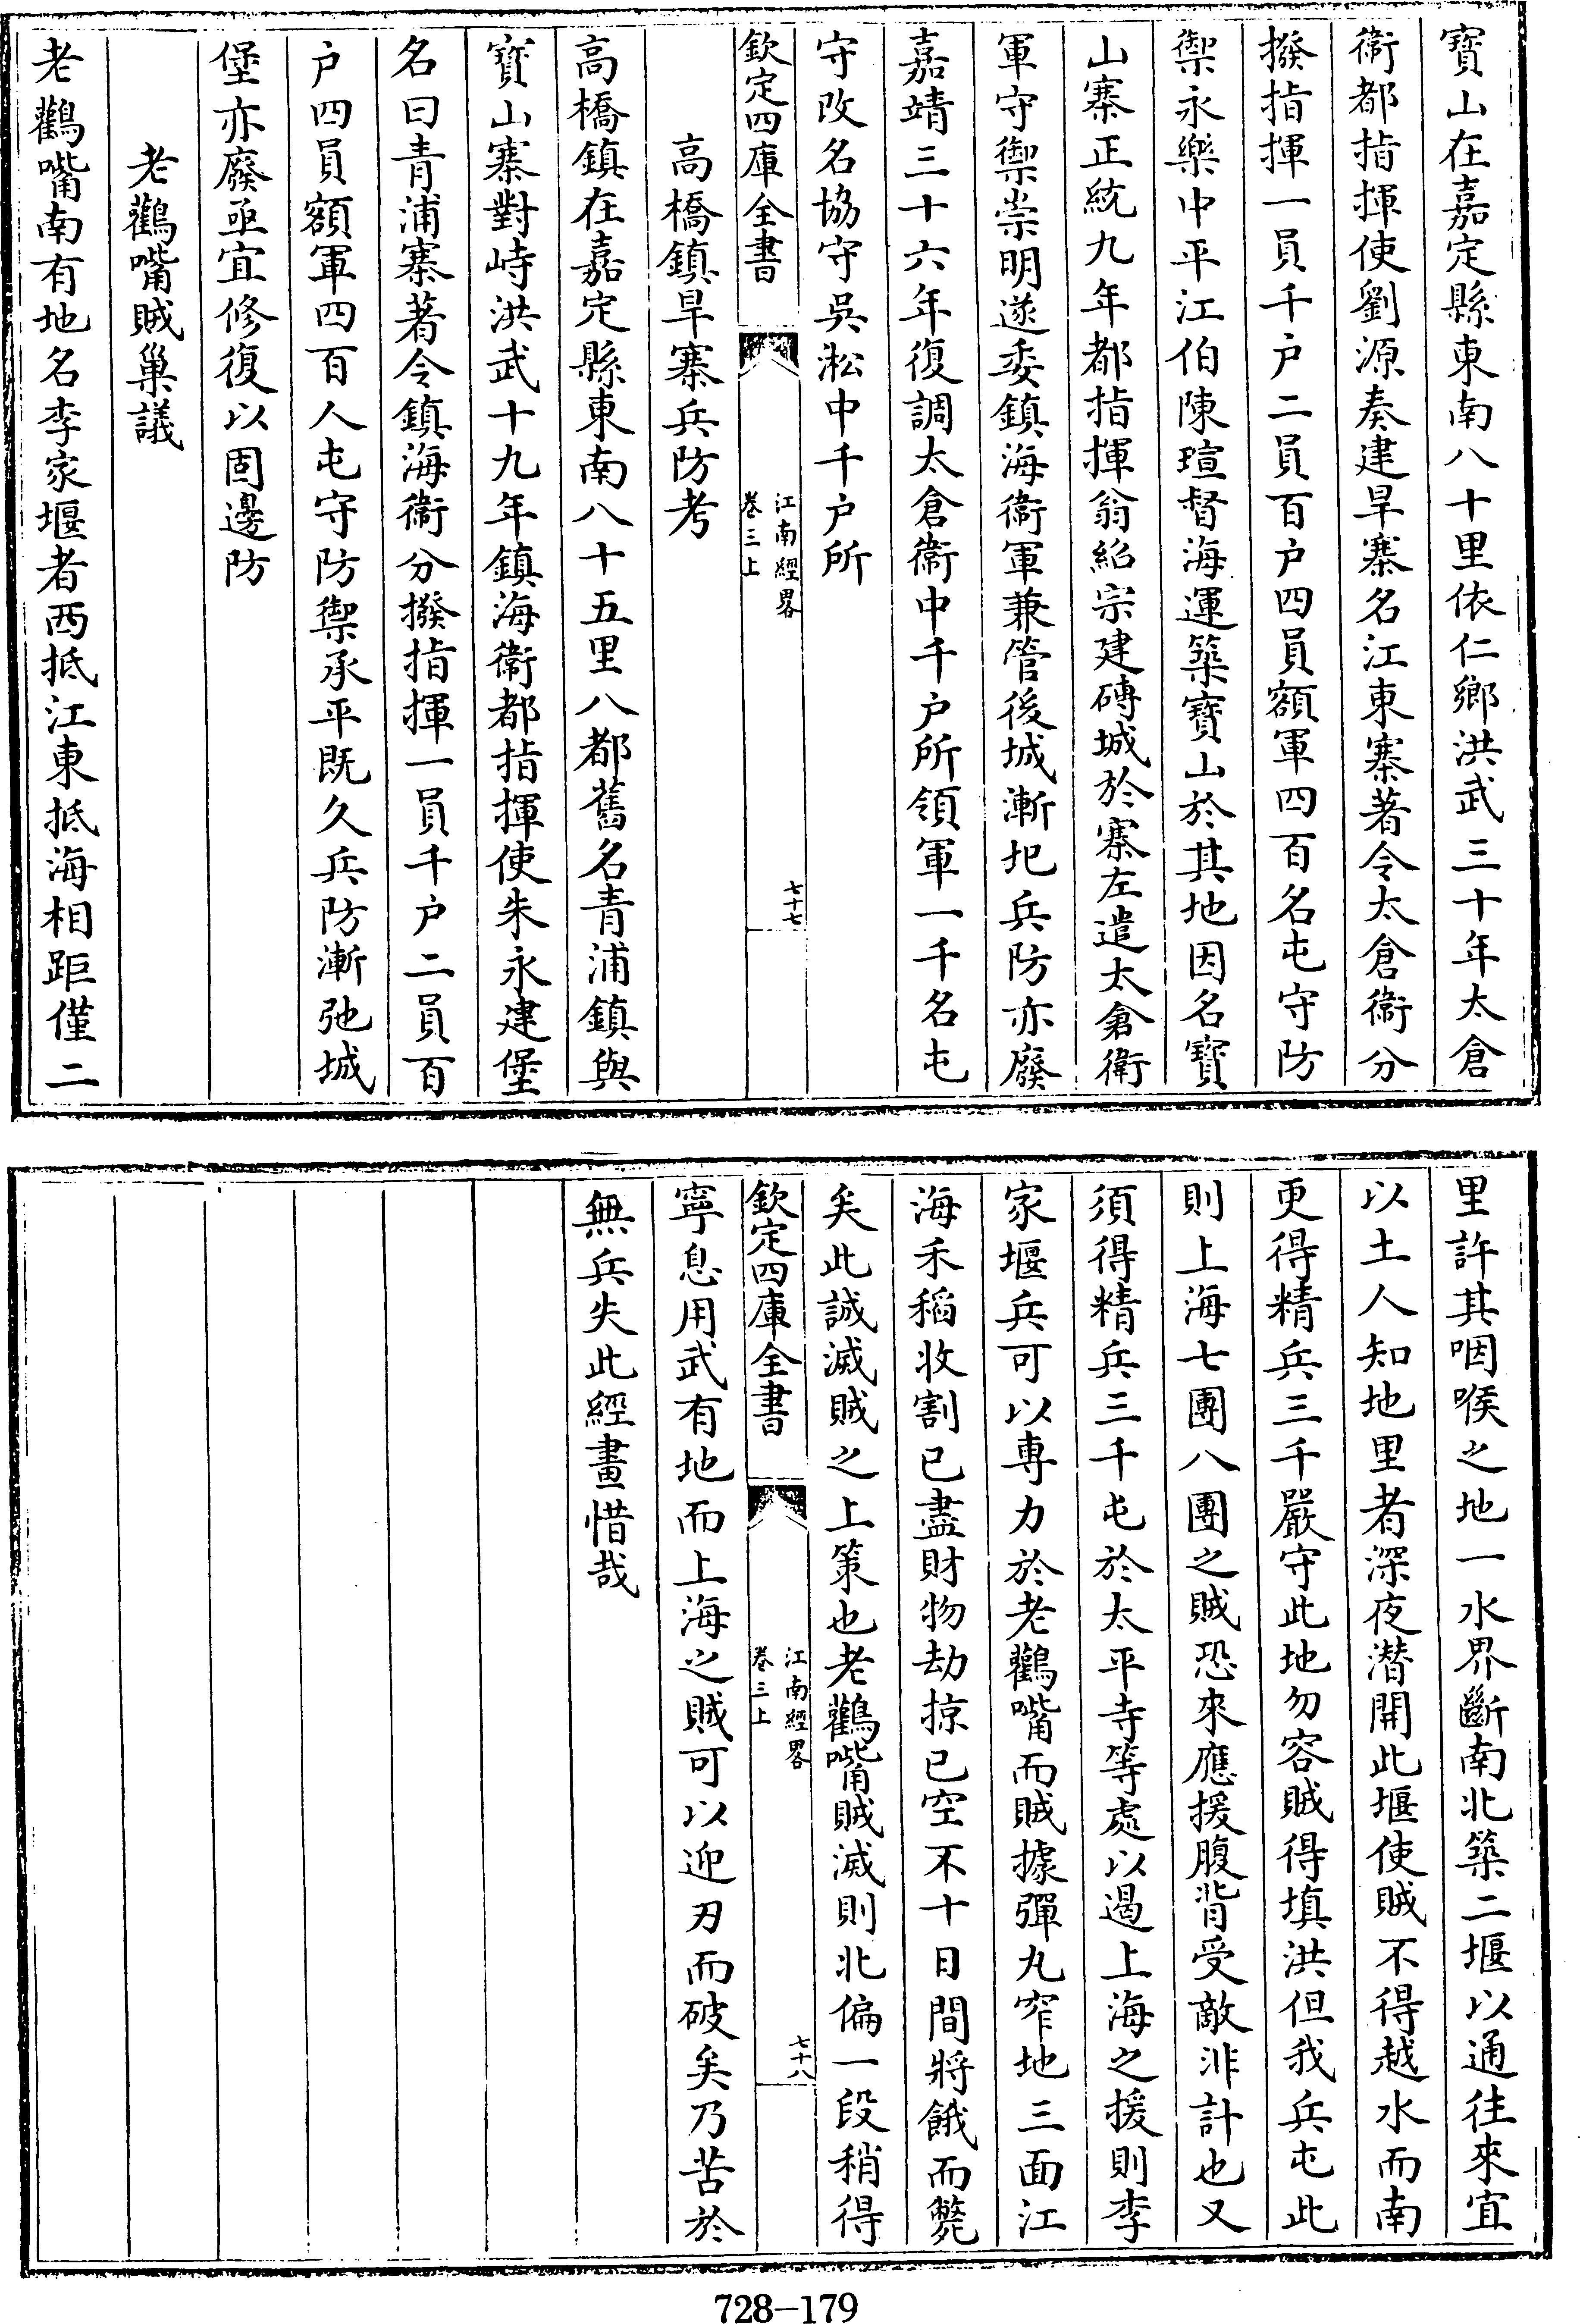 寳山在嘉定縣東南八十里依仁鄉洪武三十年太倉
衛都指揮使劉源奏建旱寨名江東寨著令太倉衛分
撥指揮一員千户二員百户四員額軍四百名屯守防
禦永樂中平江伯陳瑄督海運築寳山於其地因名寳
山寨正統九年都指揮翁紹宗建磚城於寨左遣太倉衛
軍守禦崇明遂委鎮海衛軍兼管後城漸圯兵防亦廢
嘉靖三十六年復調太倉衛中千户所領軍一千名屯
守改名協守吳淞中千户所
欽定四庫全書
江南經畧
卷三上
七十七
高橋鎮旱寨兵防考
高橋鎮在嘉定縣東南八十五里八都舊名青浦鎮與
寳山寨對峙洪武十九年鎮海衛都指揮使朱永建堡
名曰青浦寨著令鎮海衛分撥指揮一員千户二員百
户四員額軍四百人屯守防禦承平既久兵防漸弛城
堡亦廢亟宜修復以固邊防
老鸛嘴賊巢議
老鸛嘴南有地名李家堰者西抵江東抵海相距僅二
里許其咽喉之地一水界斷南北築二堰以通往來宜
以土人知地里者深夜潜開此堰使賊不得越水而南
更得精兵三千嚴守此地勿容賊得填洪但我兵屯此
則上海七團八團之賊恐來應援腹背受敵非計也又
須得精兵三千屯於太平寺等處以遏上海之援則李
家堰兵可以專力於老鸛嘴而賊據彈丸窄地三面江
海禾稻收割已盡財物劫掠已空不十日間將餓而斃
矣此誠滅賊之上策也老鸛嘴賊滅則北偏一段稍得
欽定四庫全書
江南經畧
卷三上
七十八
寧息用武有地而上海之賊可以迎刃而破矣乃苦於
無兵失此經畫惜哉
728-179